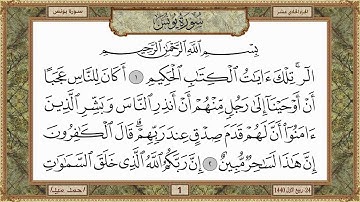 سورة يونس
الجزء الحادي عشر
سُورَةُ يُونُسَ
بِسْمِ اللَّهِ الرَّحْمَٰنِ الرَّحِيمِ
الٓر ۚ تِلْكَ ءَايَٰتُ ٱلْكِتَٰبِ ٱلْحَكِيمِ ١ أَكَانَ لِلنَّاسِ عَجَبًا
أَنْ أَوْحَيْنَآ إِلَىٰ رَجُلٍ مِّنْهُمْ أَنْ أَنذِرِ ٱلنَّاسَ وَبَشِّرِ ٱلَّذِينَ
ءَامَنُوٓا۟ أَنَّ لَهُمْ قَدَمَ صِدْقٍ عِندَ رَبِّهِمْ ۗ قَالَ ٱلْكَٰفِرُونَ
إِنَّ هَٰذَا لَسَٰحِرٌ مُّبِينٌ ٢ إِنَّ رَبَّكُمُ ٱللَّهُ ٱلَّذِى خَلَقَ ٱلسَّمَٰوَٰتِ
24 - ربيع الأول 1440
1